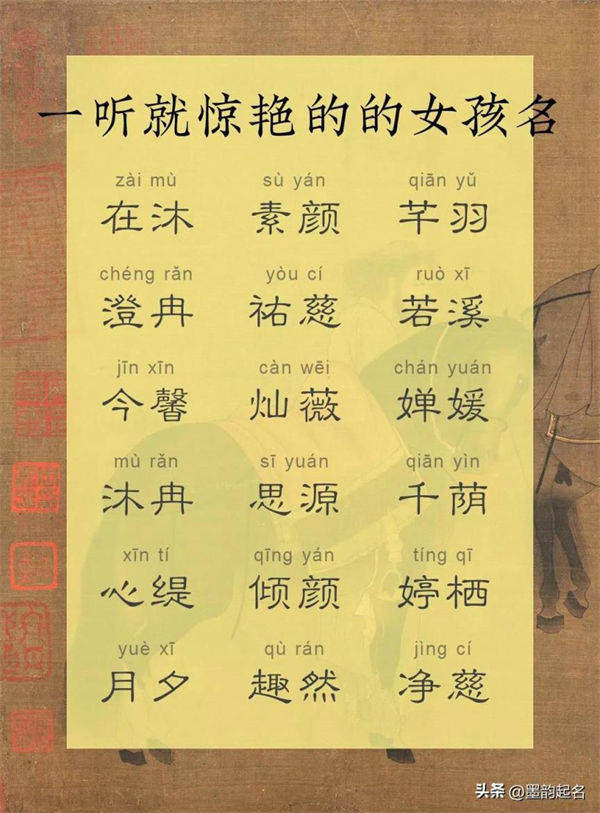 一听就惊艳的的女孩名
zài mù sù yán qiān yǔ
在沐 素颜 芊羽
chéng rǎn yòu cí ruò xī
澄冉 祐慈 若溪
jīn xīn càn wēi chán yuán
今馨 灿薇 婵媛
mù rǎn sī yuán qiān yìn
沐冉 思源 千荫
xīn tí qīng yán tíng qī
心缇 倾颜 婷栖
yuè xī qù rán jìng cí
月夕 趣然 净慈
头条 @墨韵起名